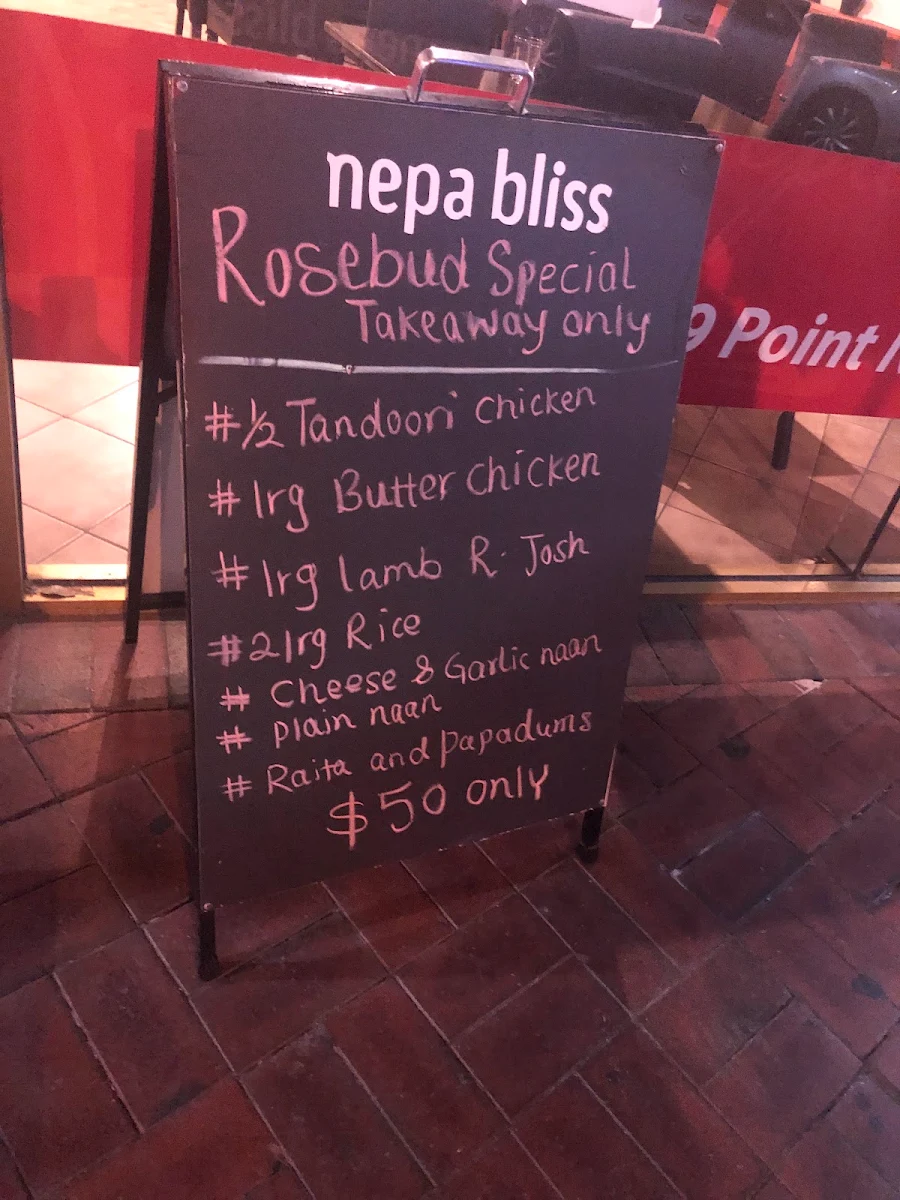 nepa bliss
Rosebud Special
Takeaway only
# 1/2 Tandoori chicken
# lrg Butter chicken
# lrg lamb R. Josh
# 2 lrg Rice
# Cheese & Garlic naan
# plain naan
# Raita and papadums
$50 only
9 Point